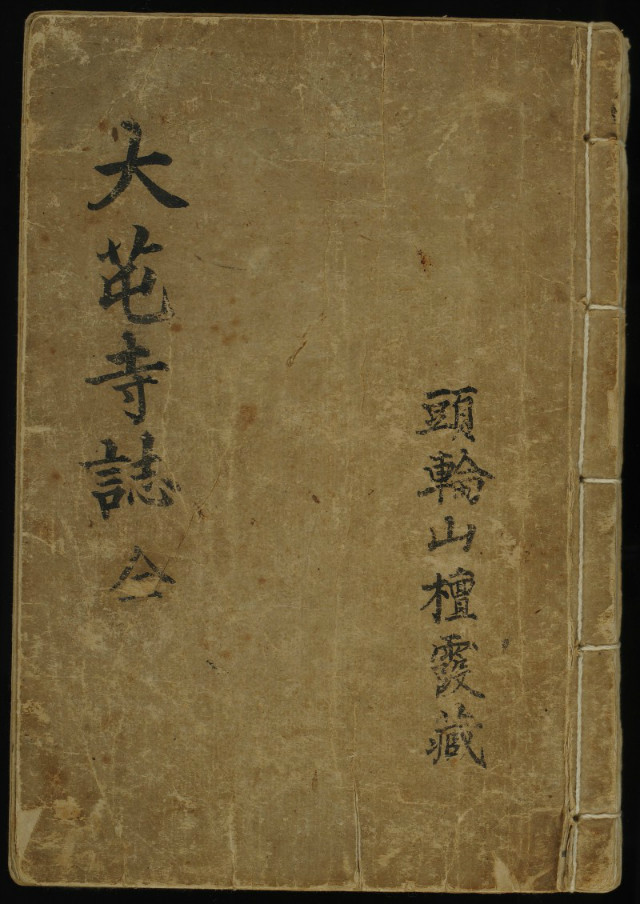 頭輪山檀霞藏
大芚寺誌 全